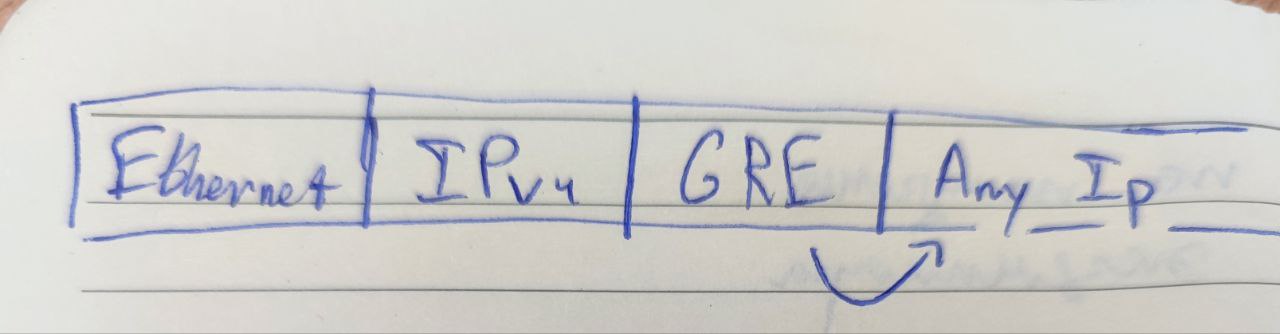 Ethernet IPv4 GRE Any Ip